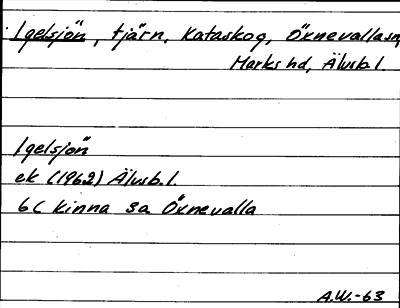 Igelsjön, tjärn, Kataskog, Öxnevallasn,
Marks hd, Älvsb.l.
Igelsjön
ek (1962) Älvsb.l.
6C Kinna 3a Öxnevalla
A.W.-63